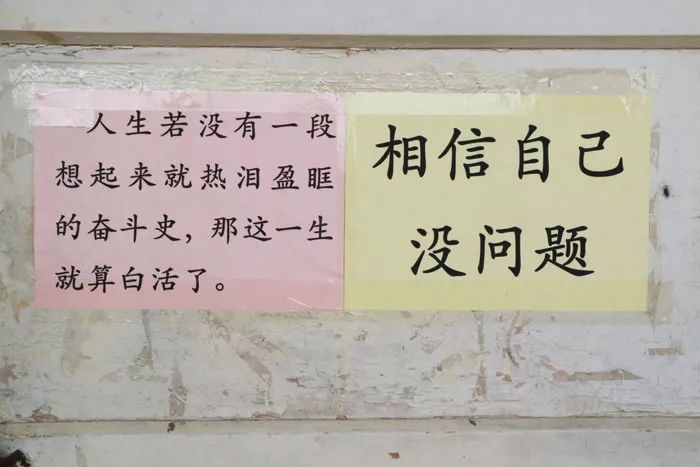 人生若没有一段
想起来就热泪盈眶
的奋斗史，那这一生
就算白活了。
相信自己
没问题